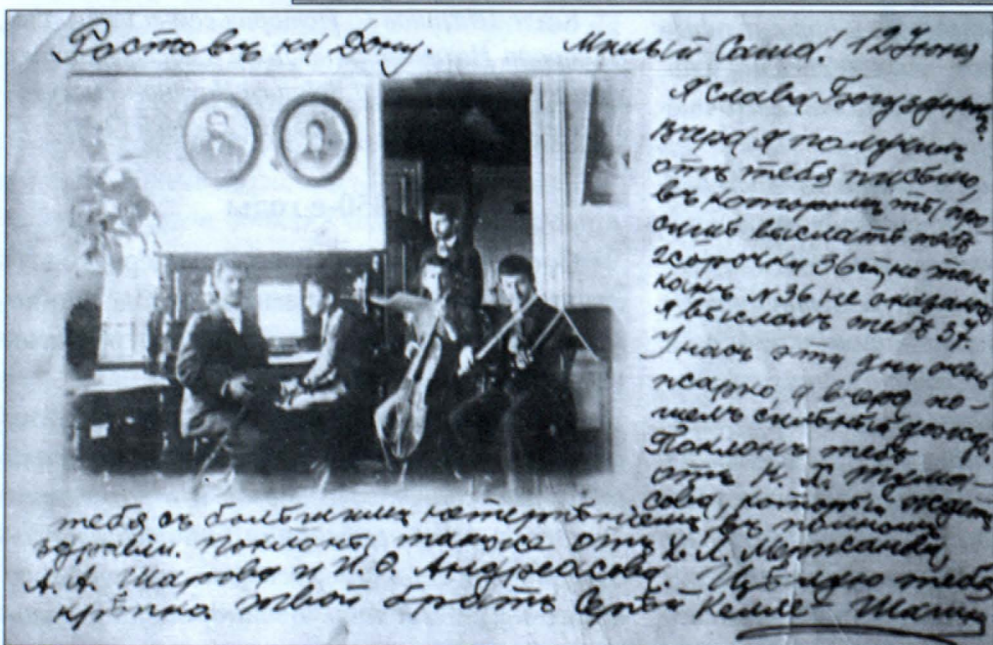 Ростовъ на Дону. Милый Саша! 12 Июня
Я слава Богу здоровъ.
Вчера я получилъ
отъ тебя письмо,
въ которомъ ты про-
сишь выслать тебѣ
2 сорочки 36 но такъ
какъ № 36 не оказалось
я выслалъ тебѣ 37.
У насъ эти дни очень
жарко, а вчера по-
шелъ сильный дождь.
Поклонъ тебѣ
отъ Н. Х. Тума-
сова, который ждетъ
тебя съ большимъ нетерпѣніемъ въ полномъ
здравіи. Поклоны также отъ Х. И.
А. А. Шарова и И. О. Андреасова. Цѣлую тебя
крѣпко твой братъ Сергѣй Келле-Шагин